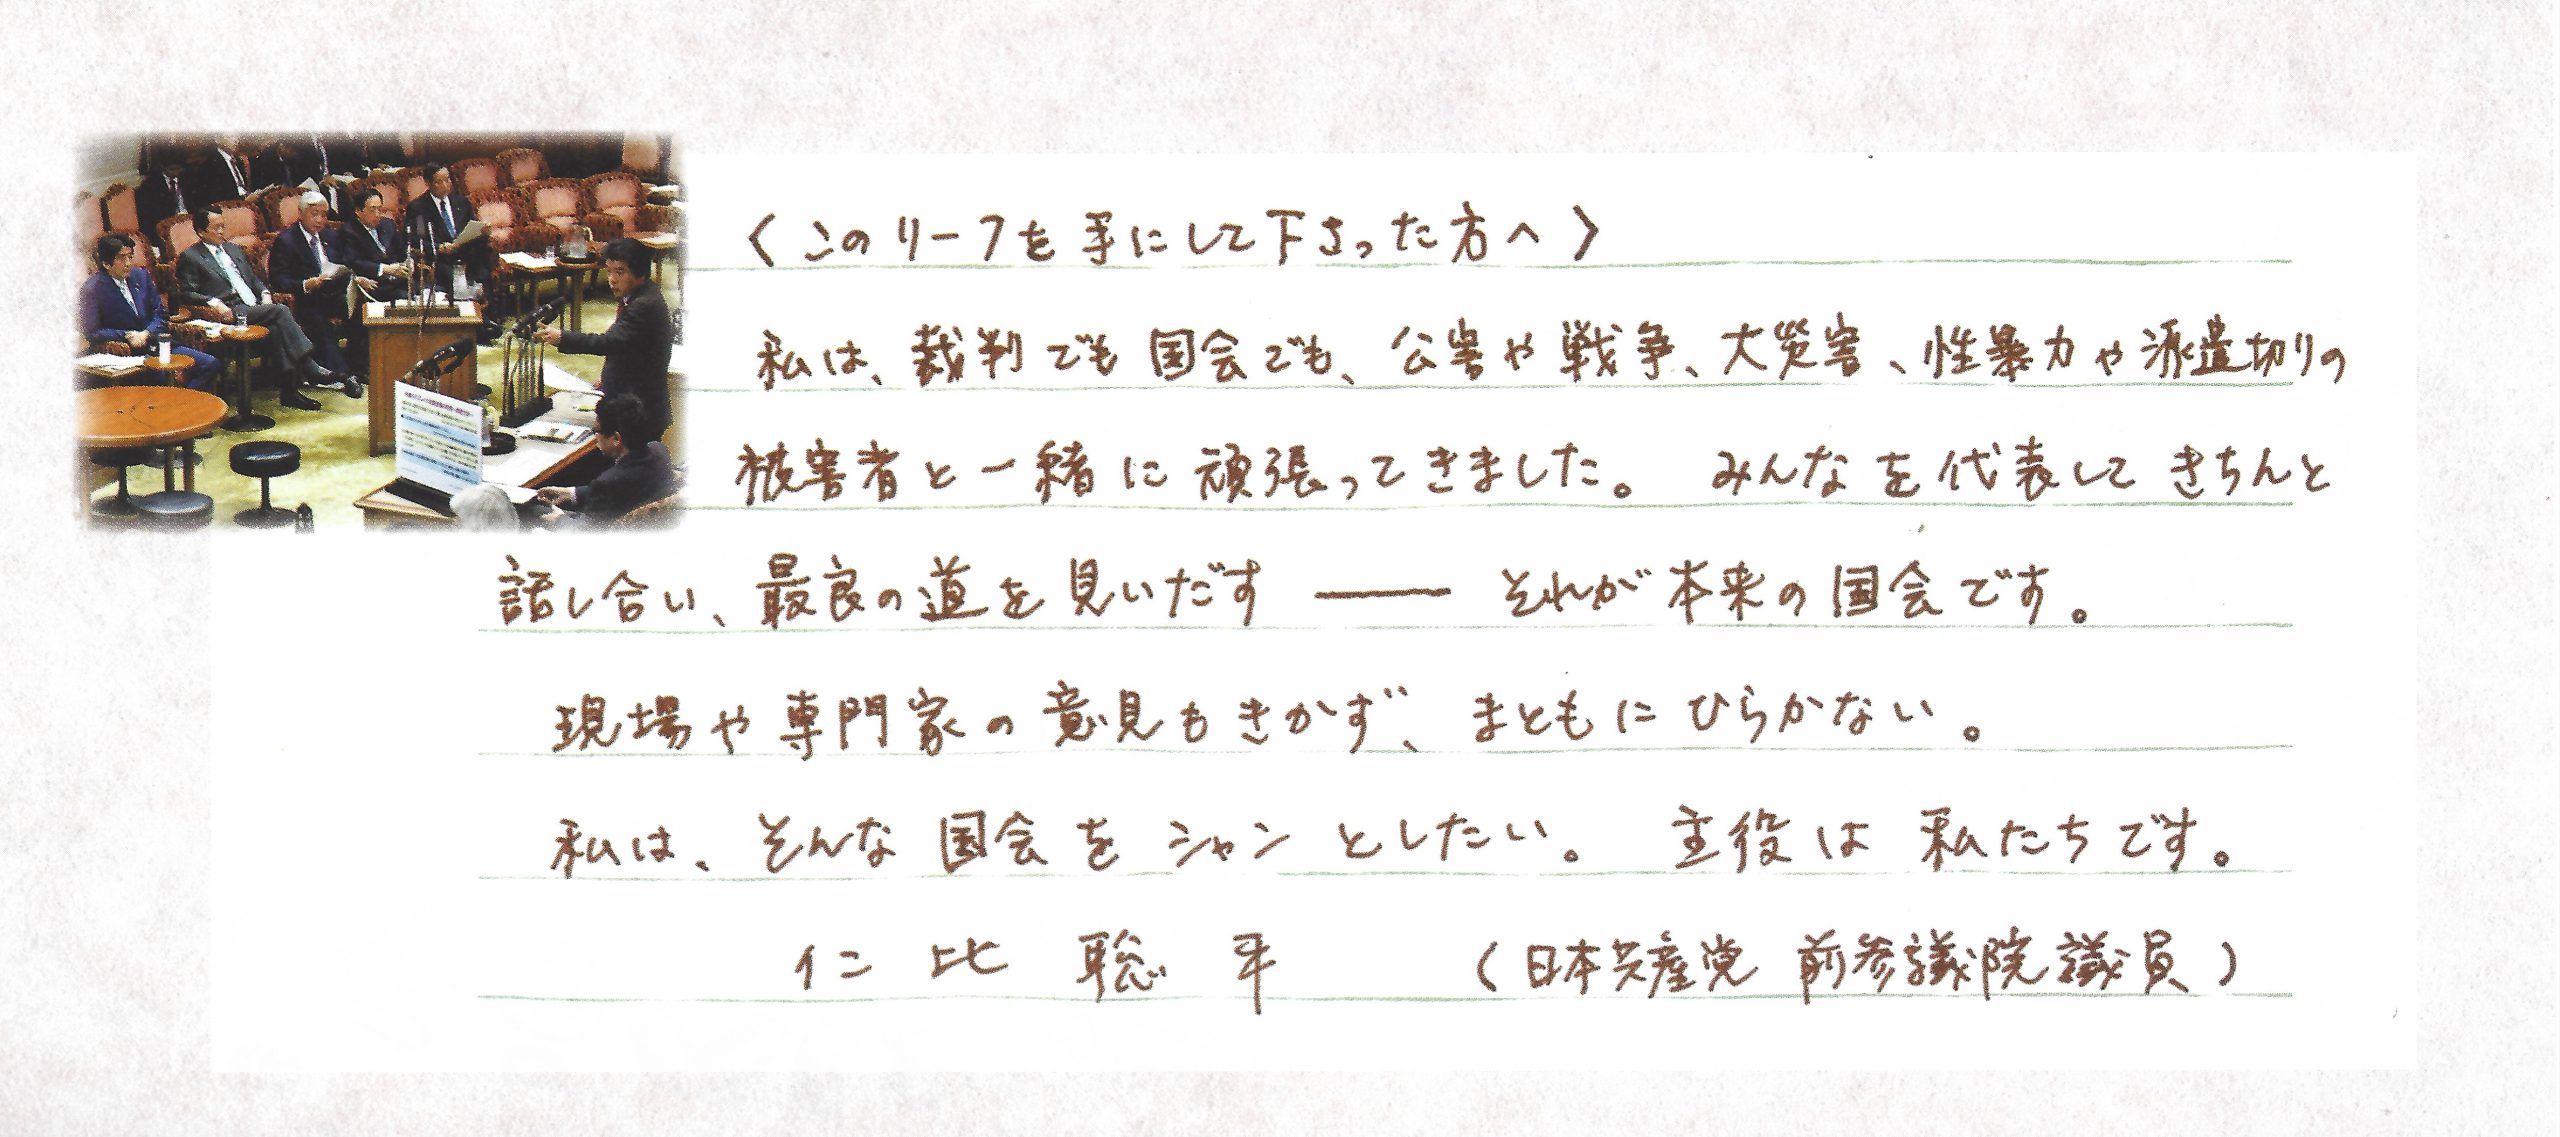 〈このリーフを手にして下さった方へ〉
私は、裁判でも国会でも、公害や戦争、大災害、性暴力や派遣切りの
被害者と一緒に頑張ってきました。 みんなを代表してきちんと
話し合い、最良の道を見いだす ―― それが本来の国会です。
現場や専門家の意見もきかず、まともにひらかない。
私は、そんな国会をシャンとしたい。 主役は私たちです。
仁比聡平 (日本共産党 前参議院議員)